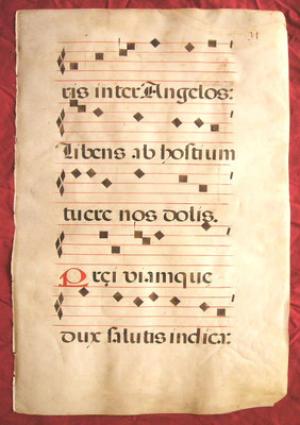 ris inter Angelos:
Libens ab hostium
tuere nos dolis.
Prçi viamque
dux salutis indica: